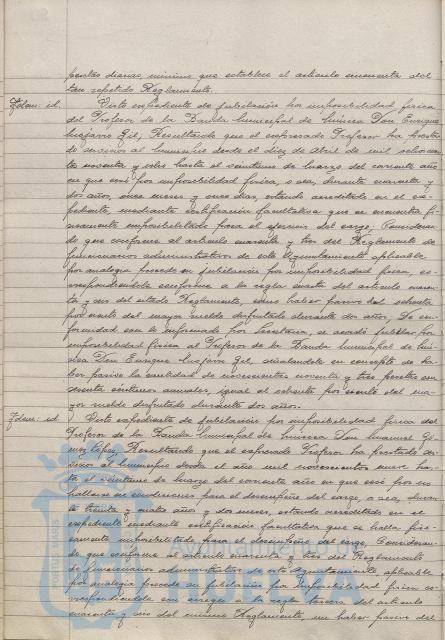 pesetas diarias, mínimo que establece el artículo cincuenta del
tan repetido Reglamento.
Idem. id. Visto expediente de jubilación por imposibilidad física
del Profesor de la Banda Municipal de Música Don Enrique
Gil, Resultando que el expresado Profesor ha prestado
de servicios al Municipio desde el diez de Abril de mil ochocien
tos noventa y seis hasta el veintiuno de Marzo del corriente año
en que cesó por imposibilidad física, o sea, durante cuarenta y
dos años, once meses y once días, estando acreditado en el ex-
pediente, mediante certificación facultativa que se encuentra fí-
sicamente imposibilitado para el ejercicio del cargo. Consideran-
do que conforme al artículo cuarenta y tres del Reglamento de
funcionarios administrativos de este Ayuntamiento aplicable
por analogía procede su jubilación por imposibilidad física, co-
rrespondiéndole conforme a la regla cuarta del artículo cuaren-
ta y seis del citado Reglamento, como haber pasivo del ochenta
por ciento del mayor sueldo disfrutado durante dos años. De con-
formidad con lo informado por Secretaría, se acordó jubilar por
imposibilidad física al Profesor de la Banda Municipal de Mú-
sica Don Enrique Gil, señalándole en concepto de ha-
ber pasivo la cantidad de novecientas noventa y tres pesetas se-
senta céntimos anuales, igual al ochenta por ciento del ma-
yor sueldo disfrutado durante dos años.
Idem. id. Visto expediente de jubilación por imposibilidad física del
Profesor de la Banda Municipal de Música Don Manuel Gó-
mez López, Resultando que el expresado Profesor ha prestado ser-
vicios al Municipio desde el año mil novecientos nueve has-
ta el veintiuno de Marzo del corriente año en que cesó por no
hallarse en condiciones para el desempeño del cargo, o sea, duran-
te treinta y cuatro años y dos meses, estando acreditado en el
expediente mediante certificación facultativa que se halla físi-
camente imposibilitado para el desempeño del cargo, Consideran-
do que conforme al artículo cuarenta y tres del Reglamento
de funcionarios administrativos de este Ayuntamiento aplicable
por analogía procede su jubilación por imposibilidad física co-
rrespondiéndole con arreglo a la regla tercera del artículo
cuarenta y seis del mismo Reglamento, un haber pasivo del